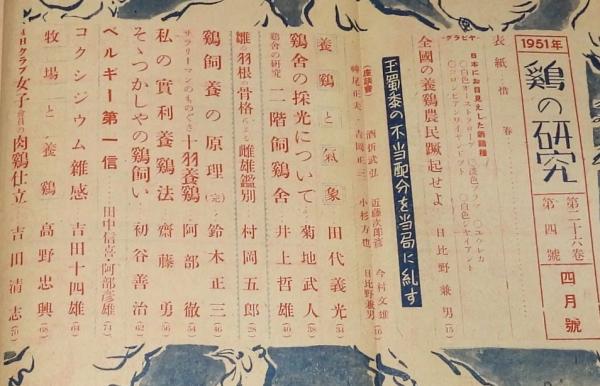 1951年
鶏の研究
第二十六巻
第四號
四月號
表紙 惜春
―グラビヤ―
日本にお目見えした新鶏種
○白色オーストラロープ
○コロンビアンワイヤンドット
○白色ジャイアント
全國の養鶏農民蹶起せよ 日比野兼男(15)
玉蜀黍の不当配分を当局に糺す
(座談會)
酒折武弘 近藤次郎彦 今村文雄
吉岡正三 小杉方也 日比野兼男(16)
養鶏と氣象 田代義光(34)
鶏舎の採光について 菊地武人(38)
鶏舎の研究 二階飼鶏舎 井上哲雄(40)
雛の羽根の骨格による雌雄鑑別 村岡五郎(28)
鶏飼養の原理(完) 鈴木正三(46)
サラリーマンのものぐさ 十羽養鶏 阿部徹(54)
私の實利養鶏法 齋藤勇(56)
そゝつかしやの鶏飼い 初谷善治(62)
ベルギー第一信 田中信喜・阿部彦雄(74)
コクシジウム雑感 吉田十四雄(64)
牧場と養鶏 高野忠興(68)
4Hクラブ女子會員の肉鶏仕立 吉田清志(70)